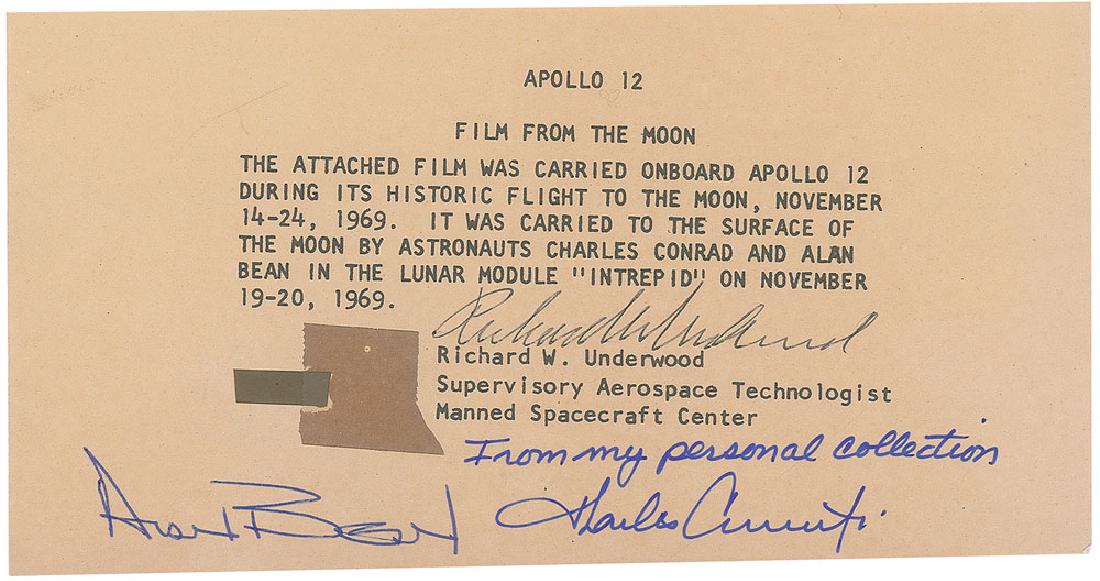 APOLLO 12
FILM FROM THE MOON
THE ATTACHED FILM WAS CARRIED ONBOARD APOLLO 12
DURING ITS HISTORIC FLIGHT TO THE MOON, NOVEMBER
14-24, 1969. IT WAS CARRIED TO THE SURFACE OF
THE MOON BY ASTRONAUTS CHARLES CONRAD AND ALAN
BEAN IN THE LUNAR MODULE "INTREPID" ON NOVEMBER
19-20, 1969.
Richard W. Underwood
Richard W. Underwood
Supervisory Aerospace Technologist
Manned Spacecraft Center
From my personal collection
Alan Bean Charles Conrad Jr.